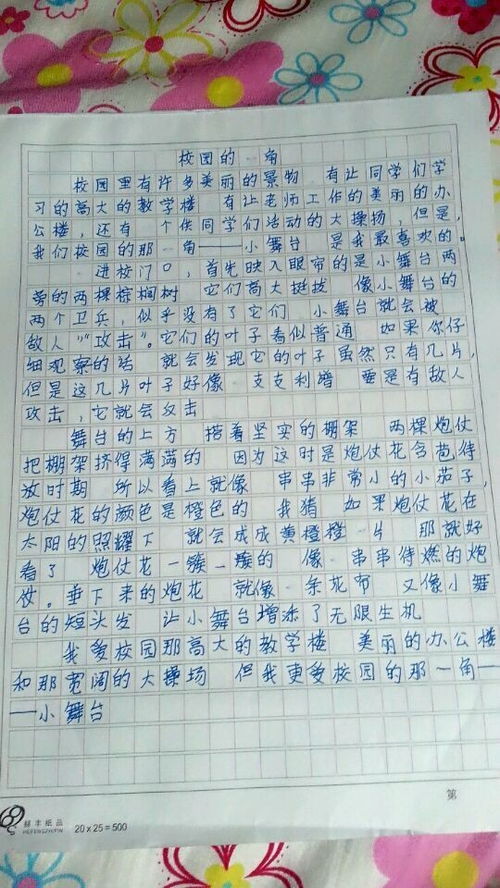 校园的一角
校园里有许多美丽的景物 有让同学们学
习的高大的教学楼 有让老师工作的美丽的办
公楼，还有 个供同学们活动的大操场，但是，
我们校园的那一角——小舞台 是我最喜欢的。
进校门口，首先映入眼帘的是小舞台两
旁的两棵棕榈树 它们高大挺拔 像小舞台的
两个卫兵，似乎没有了它们 小舞台就会被
敌人"攻击"。它们的叶子看似普通 如果你仔
细观察的话 就会发现它的叶子虽然只有几片，
但是这几片叶子好像 支支利增 要是有敌人
攻击，它就会反击
舞台的上方 搭着坚实的棚架 两棵炮仗
把棚架挤得满满的 因为这时是炮仗花含苞待
放时期 所以看上就像 串串非常小的小茄子，
炮仗花的颜色是橙色的 我猜 如果炮仗花在
太阳的照耀下 就会成成黄橙橙一片 那就好
看了 炮仗花一簇一簇的 像一串串待燃的炮
仗。垂下来的炮花 就像一条花布 又像小舞
台的短头发 让小舞台增添了无限生机
我爱校园那高大的教学楼 美丽的办公楼
和那宽阔的大操场 但我更爱校园的那一角—
—小舞台
第
赫丰纸品
HEFENGZHIPIN
20x25=500